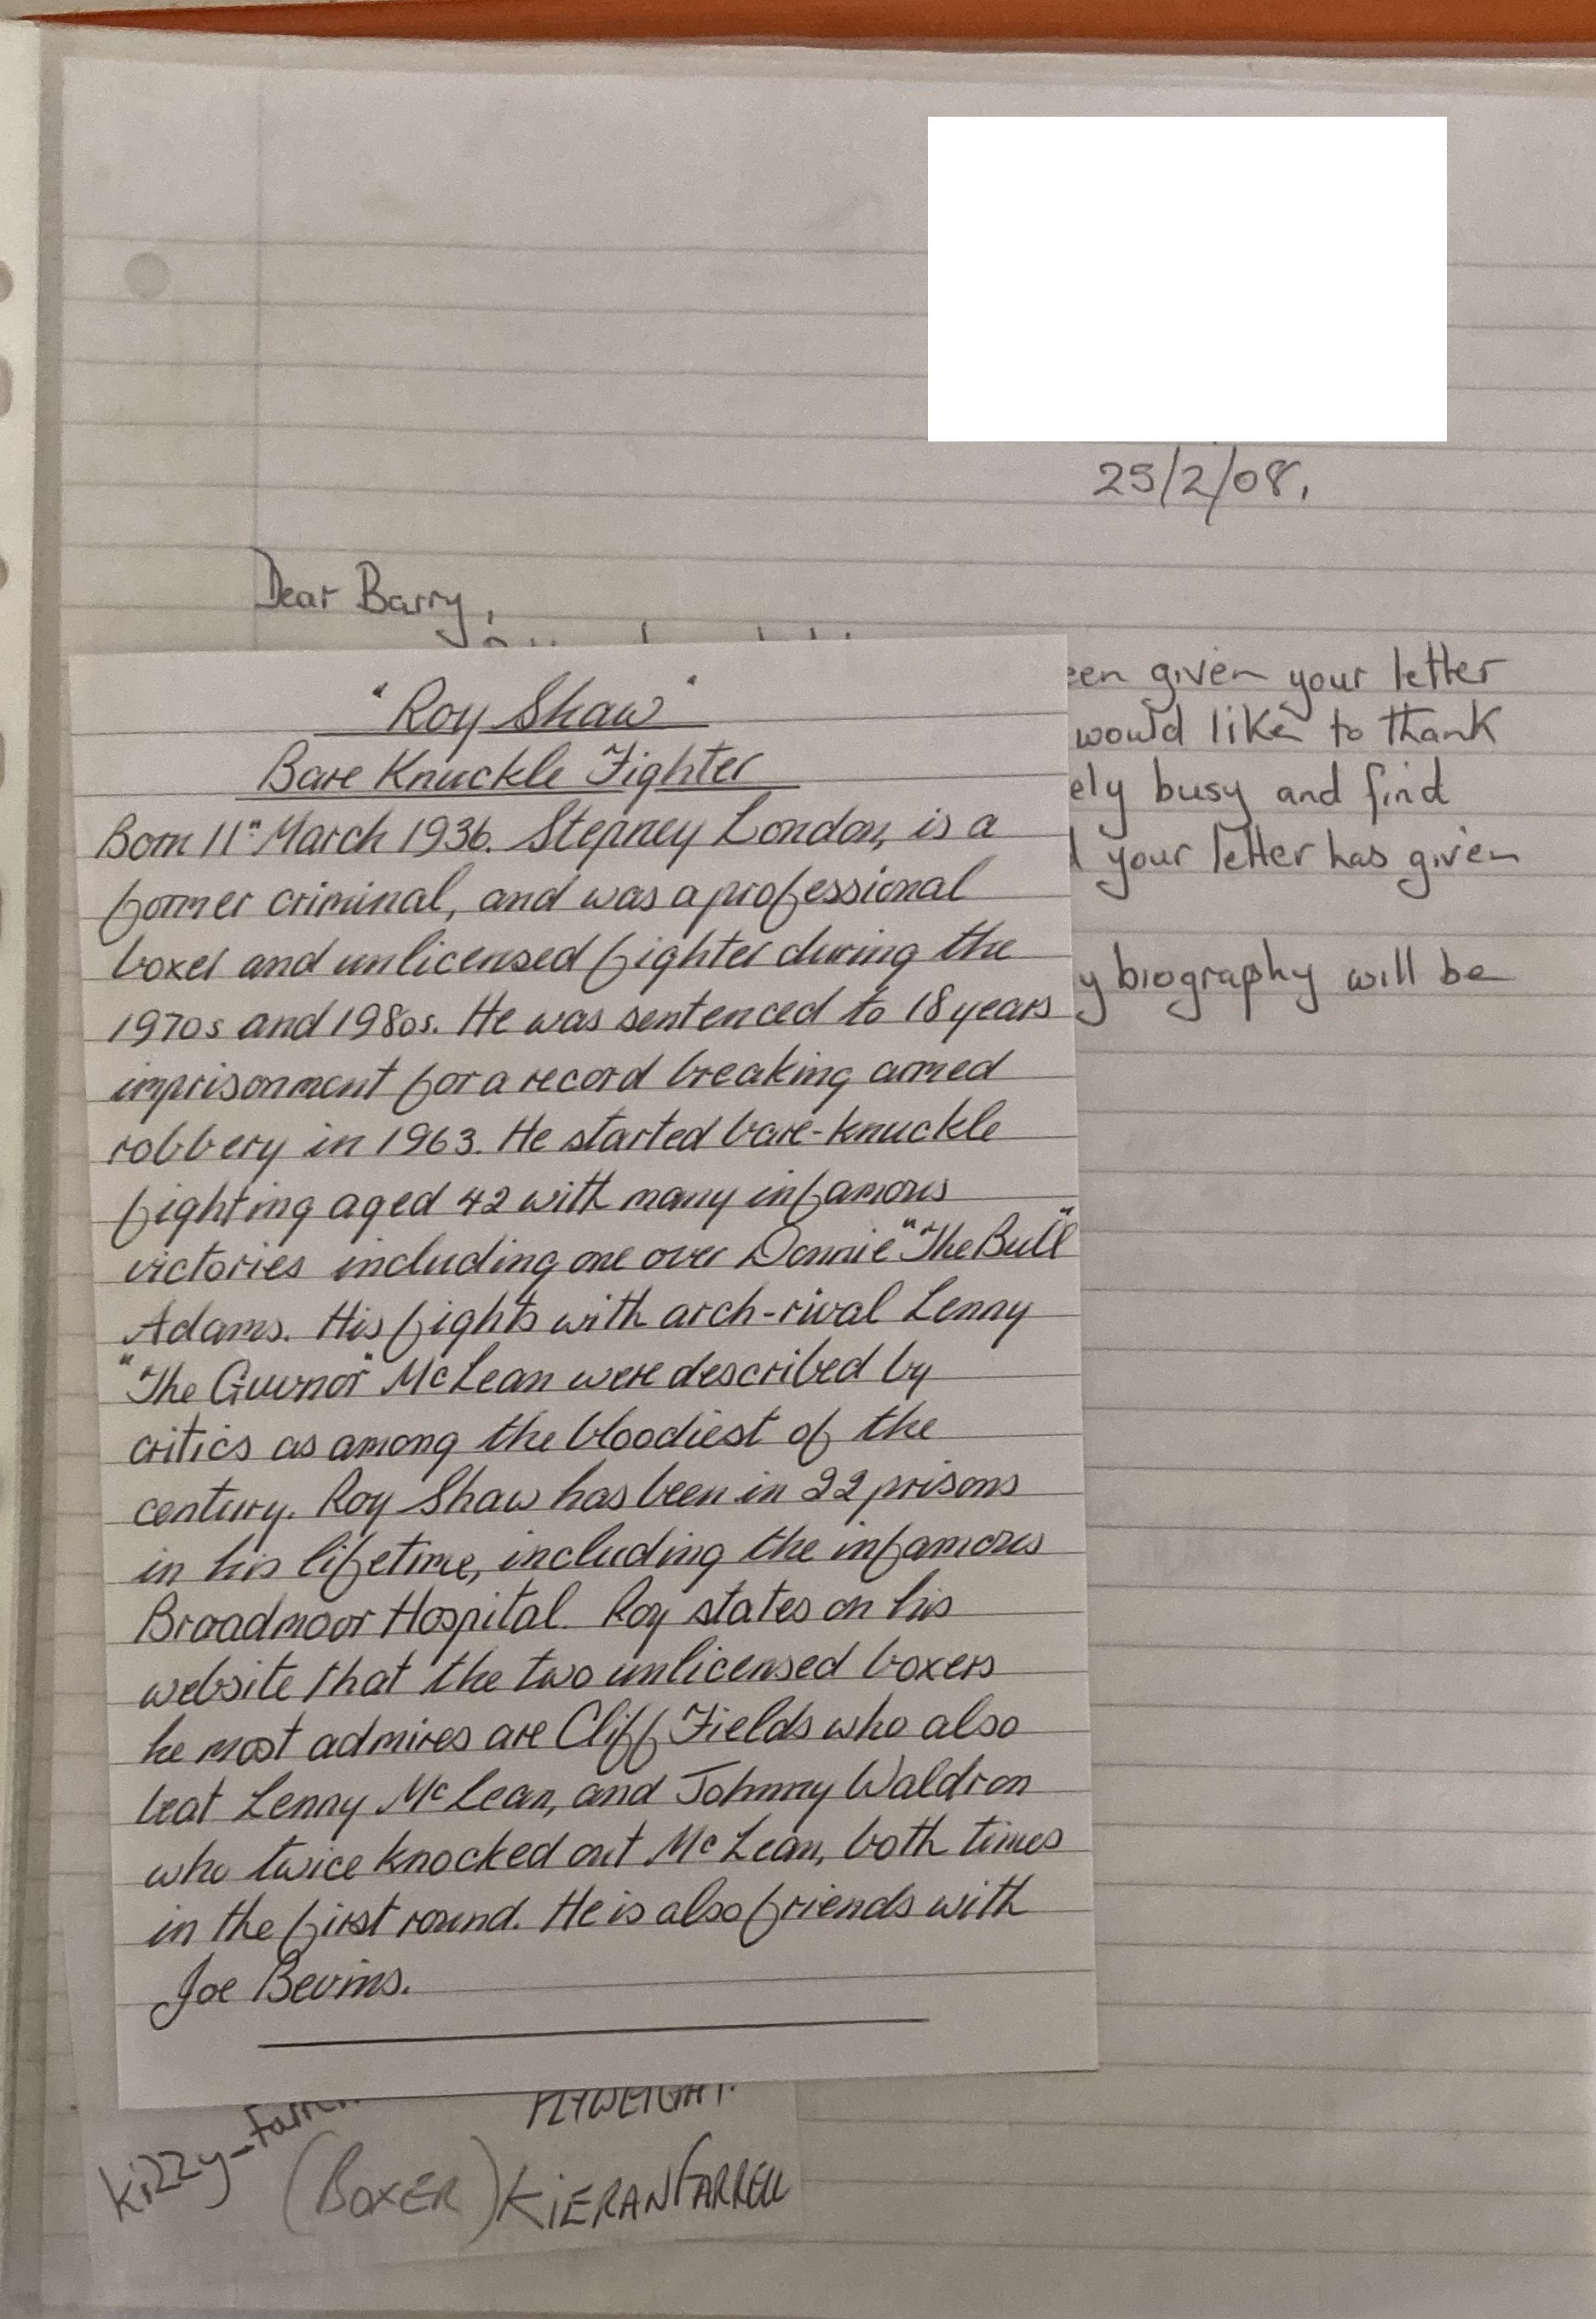 25/2/08.
Dear Barry,
een given your letter
would like to thank
ely busy and find
your letter has given
y biography will be
"Roy Shaw"
Bare Knuckle Fighter
Born 11" March 1936. Stepney London, is a
former criminal, and was a professional
boxer and unlicensed fighter during the
1970s and 1980s. He was sentenced to 18 years
imprisonment for a record breaking armed
robbery in 1963. He started bare-knuckle
fighting aged 42 with many infamous
victories including one over Donnie "The Bull"
Adams. His fights with arch-rival Lenny
"The Guvnor" McLean were described by
critics as among the bloodiest of the
century. Roy Shaw has been in 22 prisons
in his lifetime, including the infamous
Broadmoor Hospital. Roy states on his
website that the two unlicensed boxers
he most admires are Cliff Fields who also
beat Lenny McLean, and Johnny Waldron
who twice knocked out McLean, both times
in the first round. He is also friends with
Joe Bevins.
FLYWEIGHT.
Kizzy-Farrell
(BOXER) KiERAN FARRELL